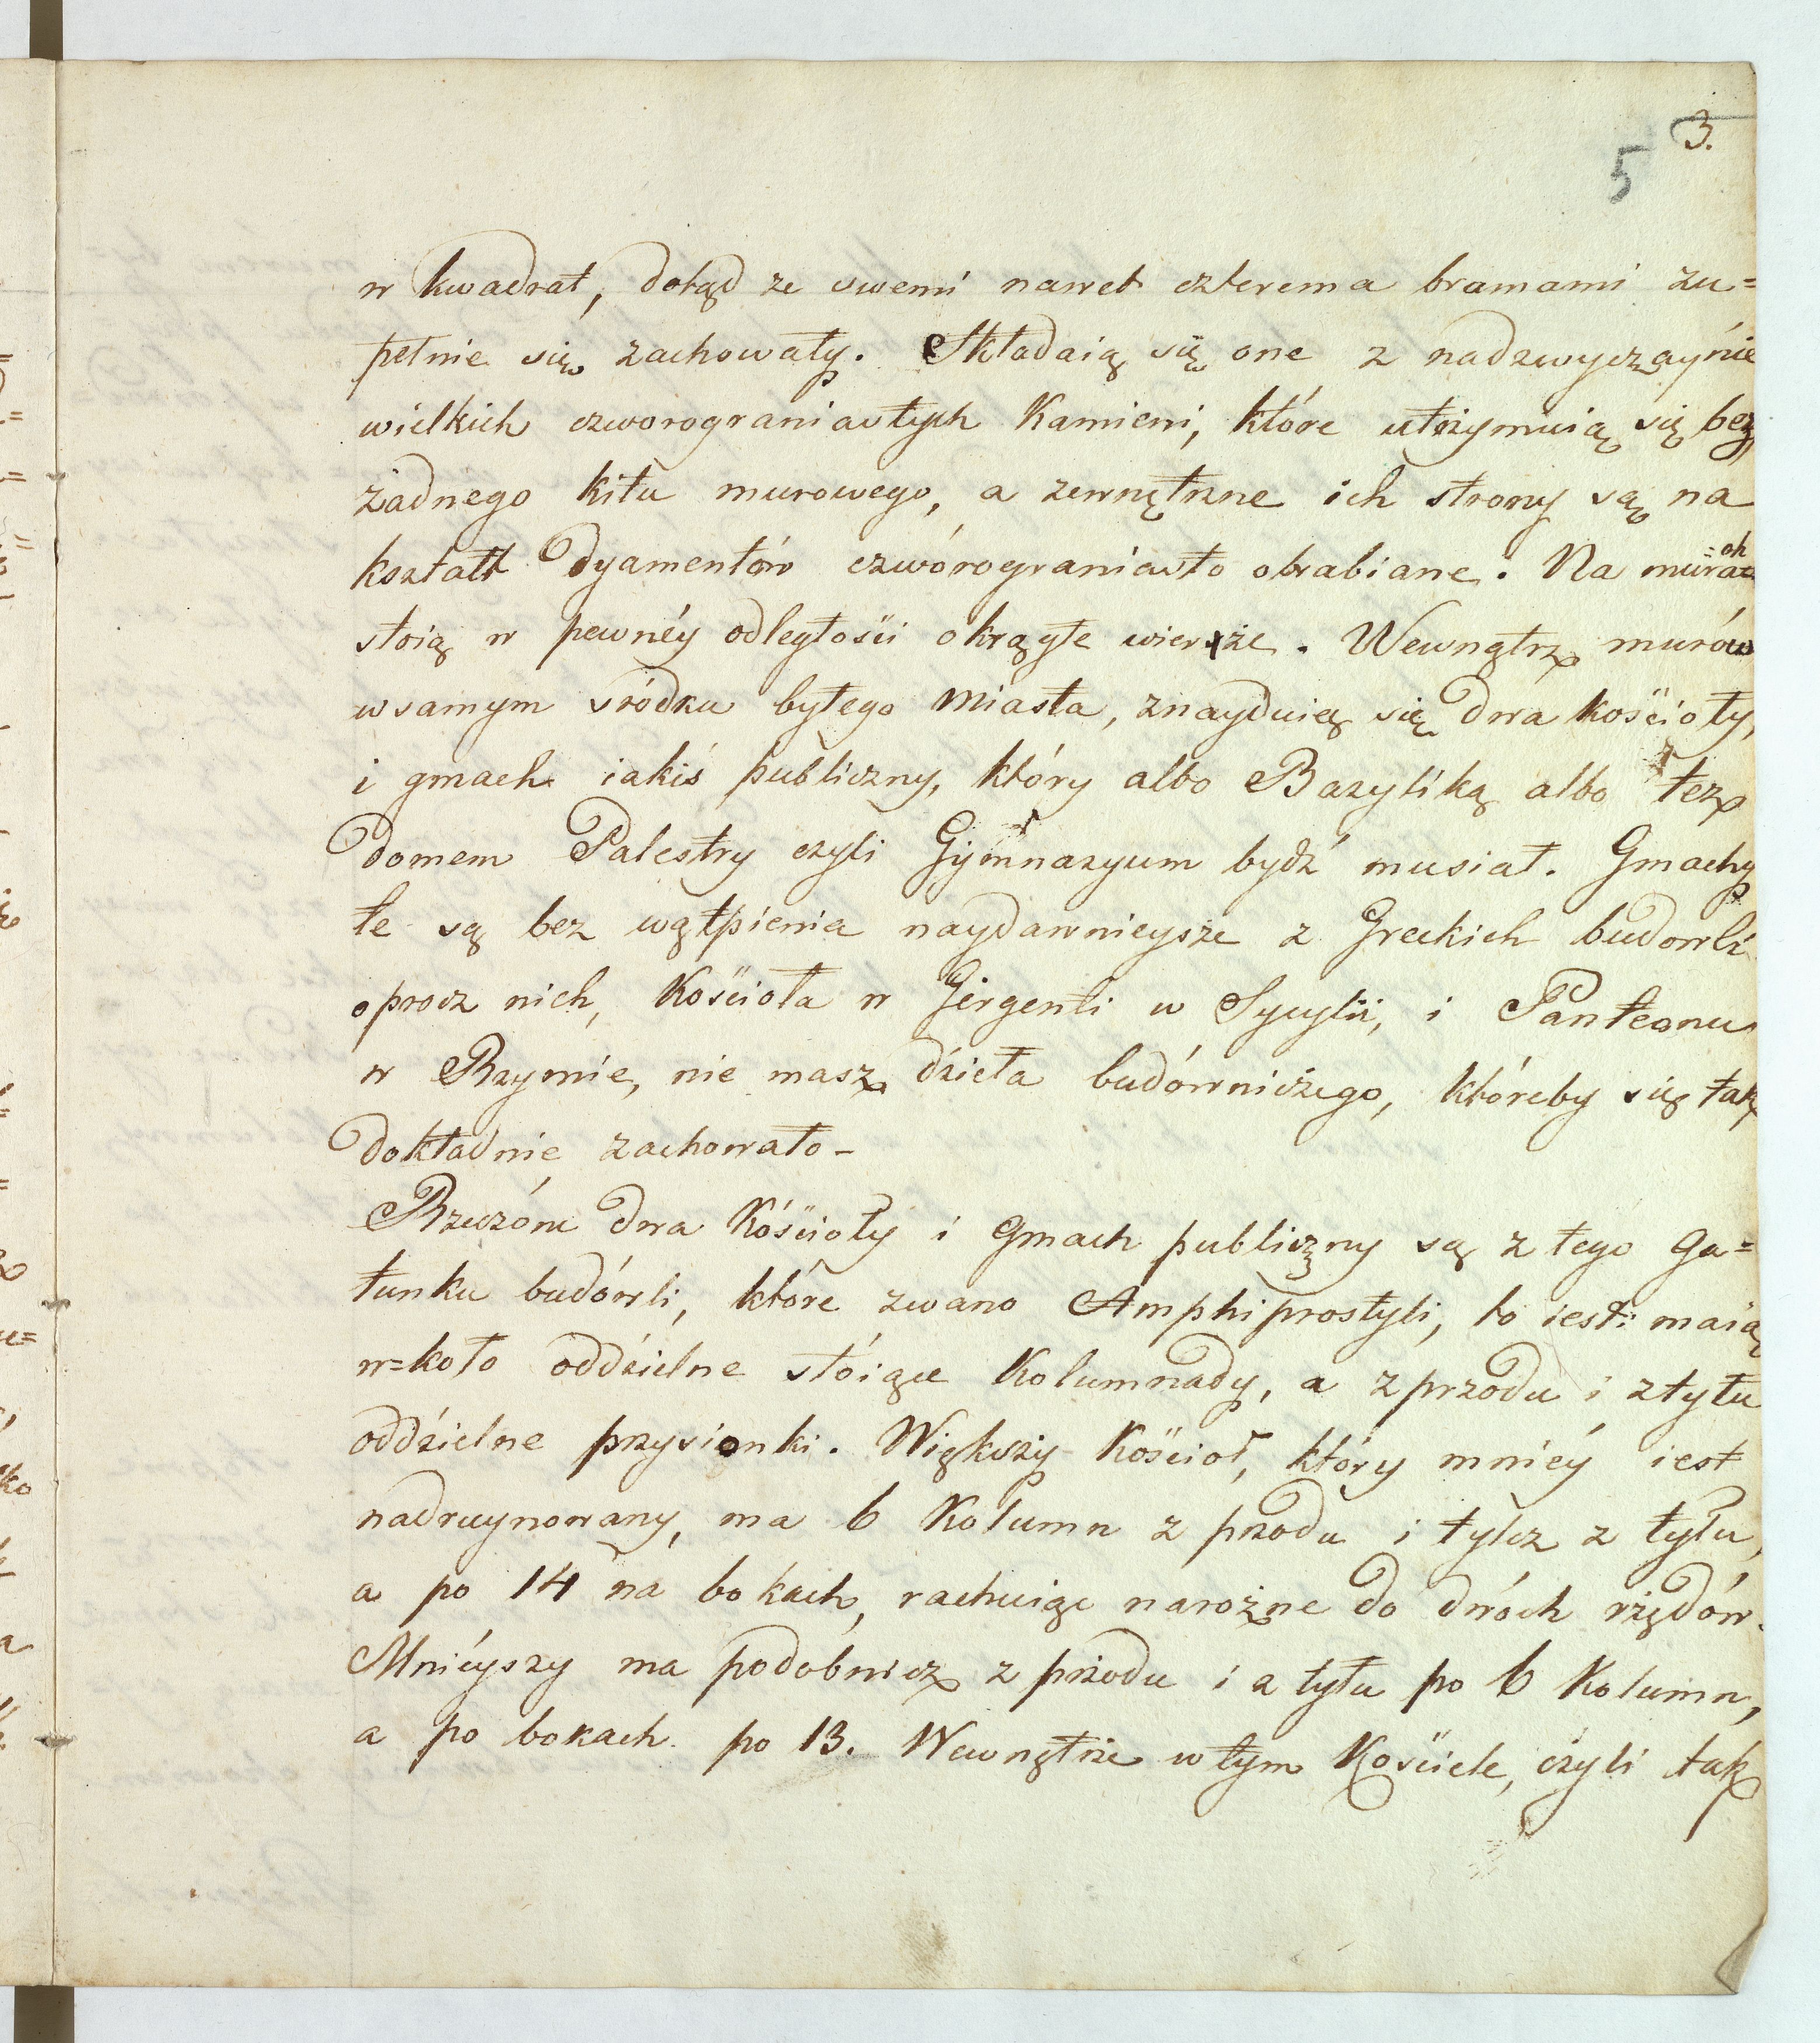 3.
5
w kwadrat, dotąd ze swemi nawet czterema bramami zu=
pełnie się zachowały. Składaią się one z nadzwyczaynie
wielkich czworograniastych Kamieni, które utrzymuią się bez
żadnego kitu murowego, a zewnętrzne ich strony są na
kształt Dyamentów czwórograniasto obrabiane. Na mura=
=ch
stoią w pewnéy odległości okrągłe wierze. Wewnątrz murów
w samym środku byłego Miasta, znayduią się dwa kościoły,
i gmach iakiś publiczny, który albo Bazyliką albo też
Domem Palestry czyli Gymnazyum bydź musiał. Gmachy
te są bez wątpienia naydawnieysze z Greckich budowli
oprocz nich, Kościoła w Girgenti w Sycylii, i Panteonu
w Rzymie, nie masz dzieła budówniczego, któreby się tak
dokładnie zachowało –
Rzeczóne dwa Kościoły i Gmach publiczny są z tego Ga=
tunku budówli, które zwano Amphiprostyli, to iest: maią
w=koło oddzielne stóiące Kolumnady, a z przodu i z tyłu
oddzielne przysionki. Większy Kościoł, który mniéy iest
nadruynowany, ma 6 Kolumn z przodu i tylez z tyłu,
a po 14 na bokach, rachuiąc narożne do dwóch rzędów.
Mniéyszy ma podobniez z przodu i z tyłu po 6 Kolumn,
a po bokach po 13. Wewnątrze w tym Kościele, czyli tak